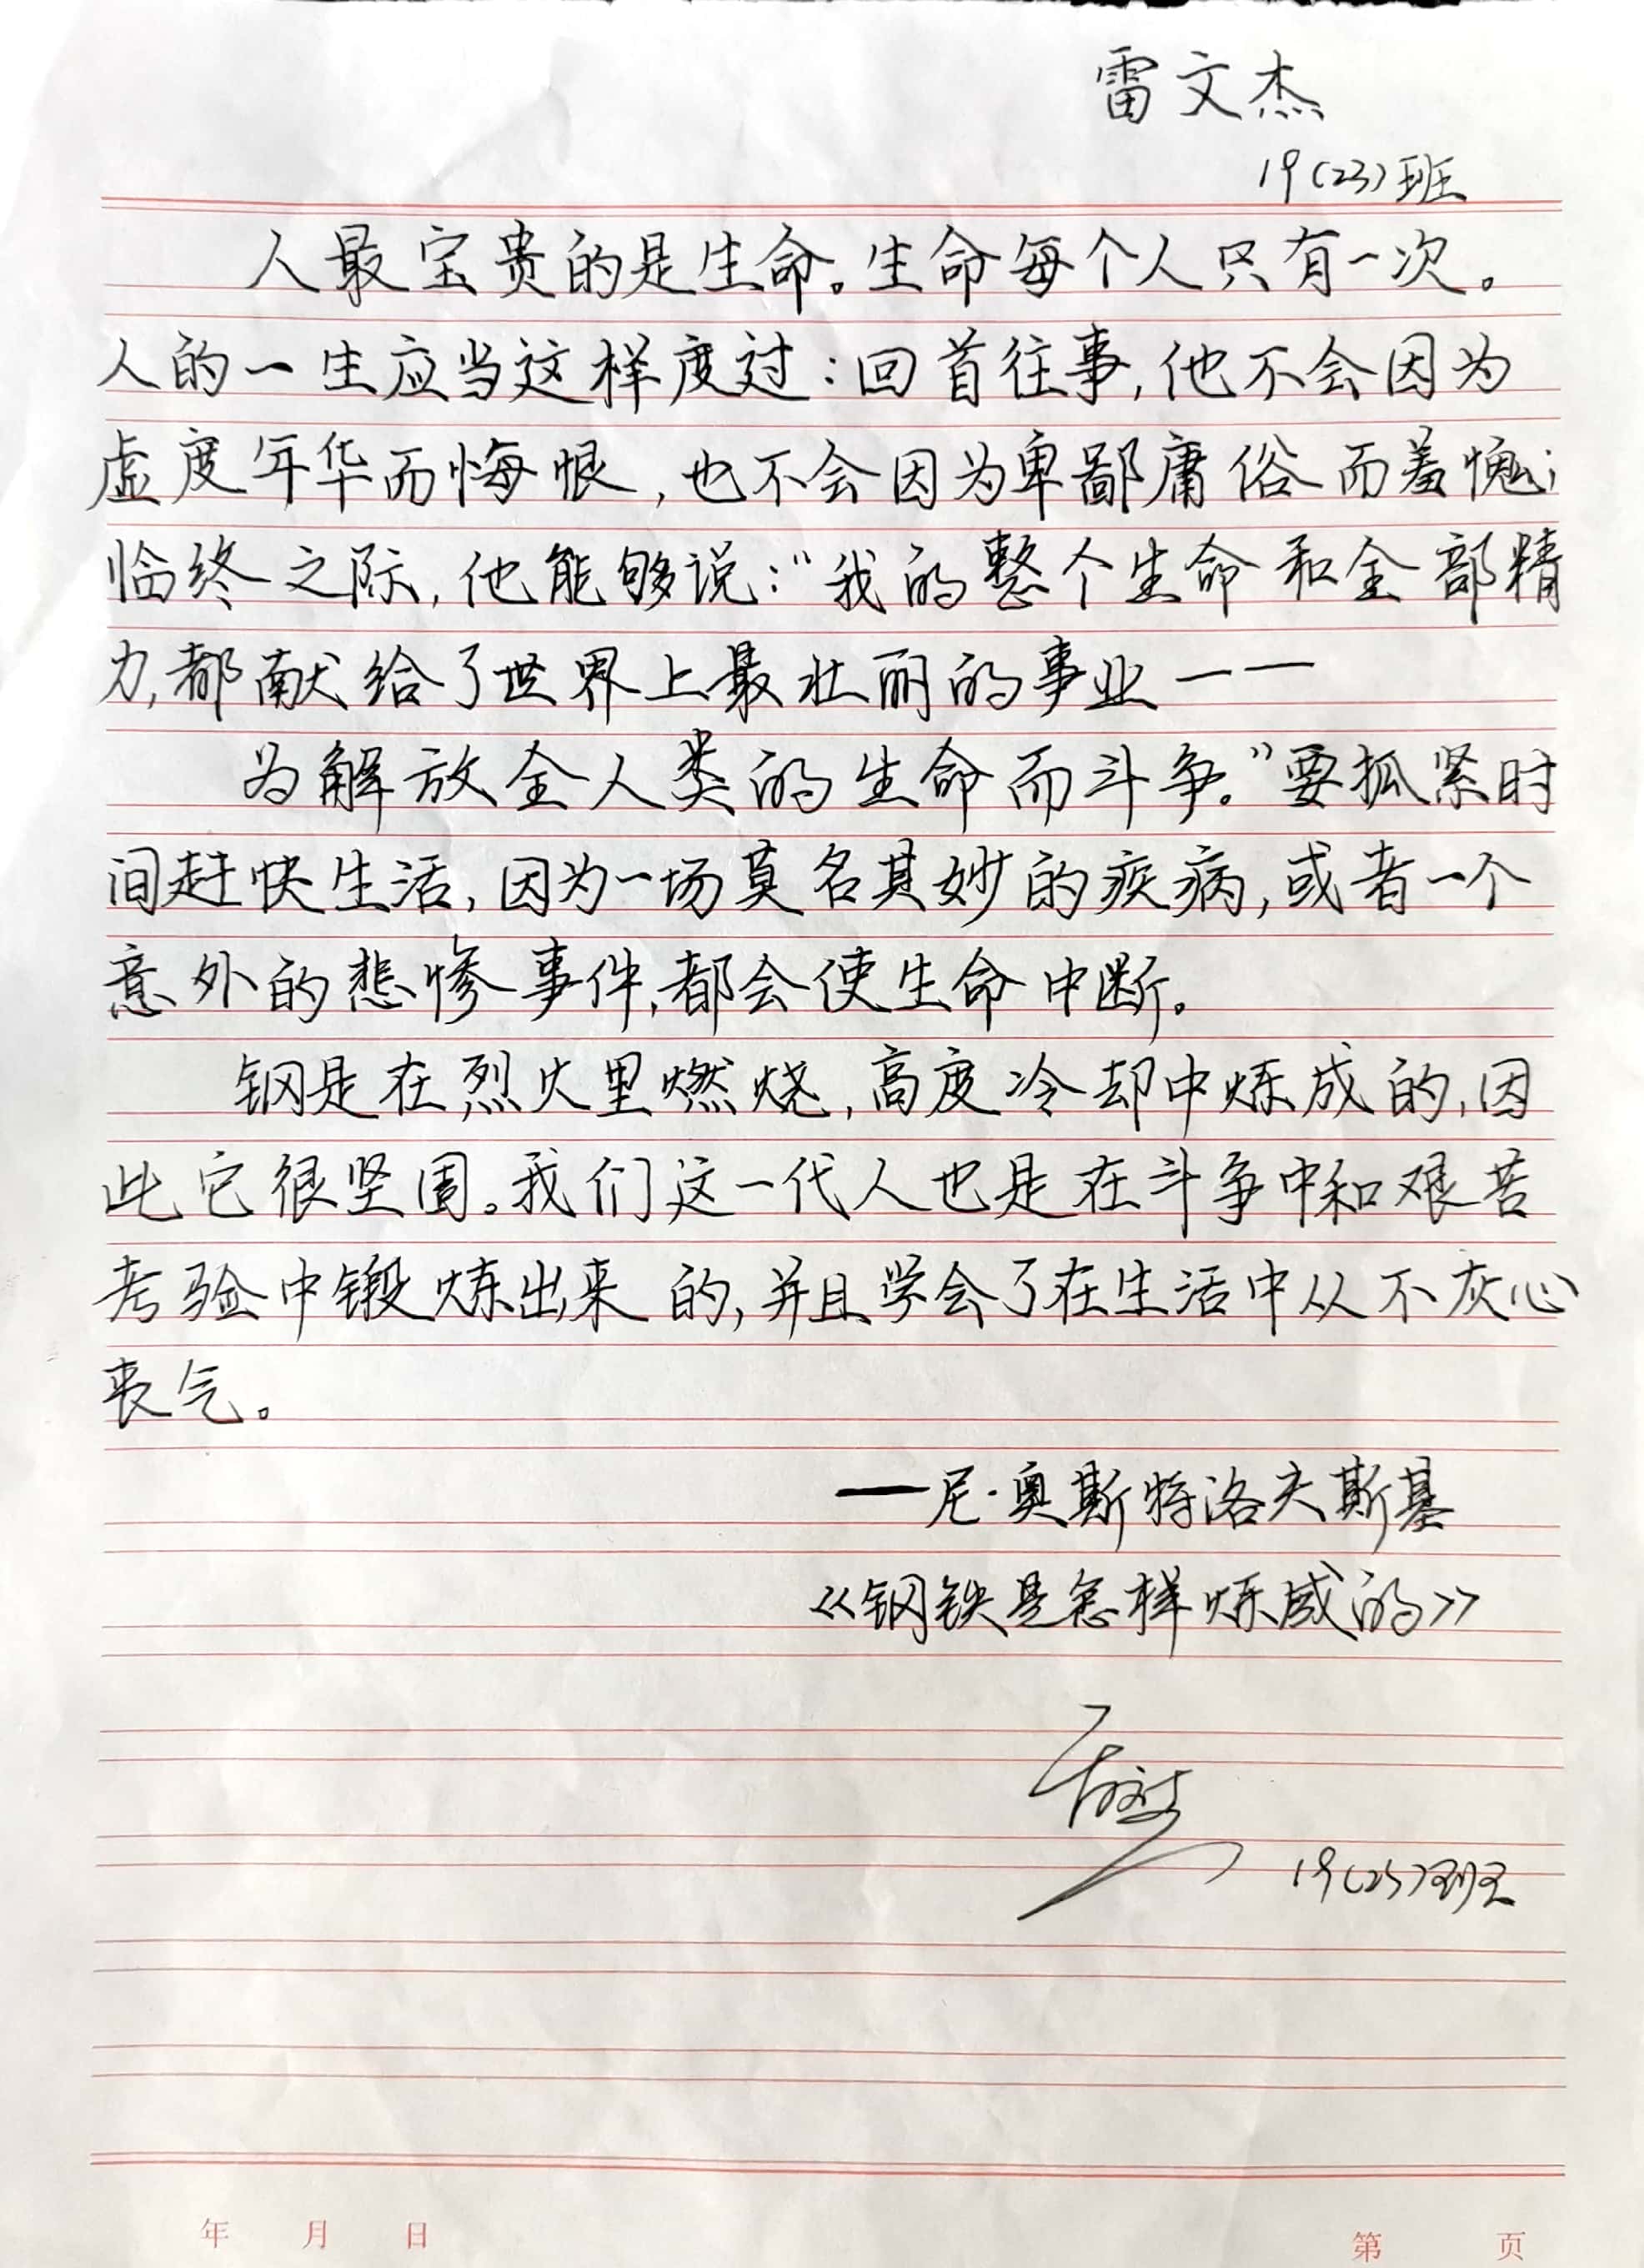 雷文杰
19(23)班
人最宝贵的是生命。生命每个人只有一次。
人的一生应当这样度过：回首往事，他不会因为
虚度年华而悔恨，也不会因为卑鄙庸俗而羞愧；
临终之际，他能够说：“我的整个生命和全部精
力，都献给了世界上最壮丽的事业——
为解放全人类的生命而斗争。”要抓紧时
间赶快生活，因为一场莫名其妙的疾病，或者一个
意外的悲惨事件，都会使生命中断。
钢是在烈火里燃烧，高度冷却中炼成的，因
此它很坚固。我们这一代人也是在斗争中和艰苦
考验中锻炼出来的，并且学会了在生活中从不灰心
丧气。
——尼·奥斯特洛夫斯基
《钢铁是怎样炼成的》
19(23)班
年 月 日
第 页